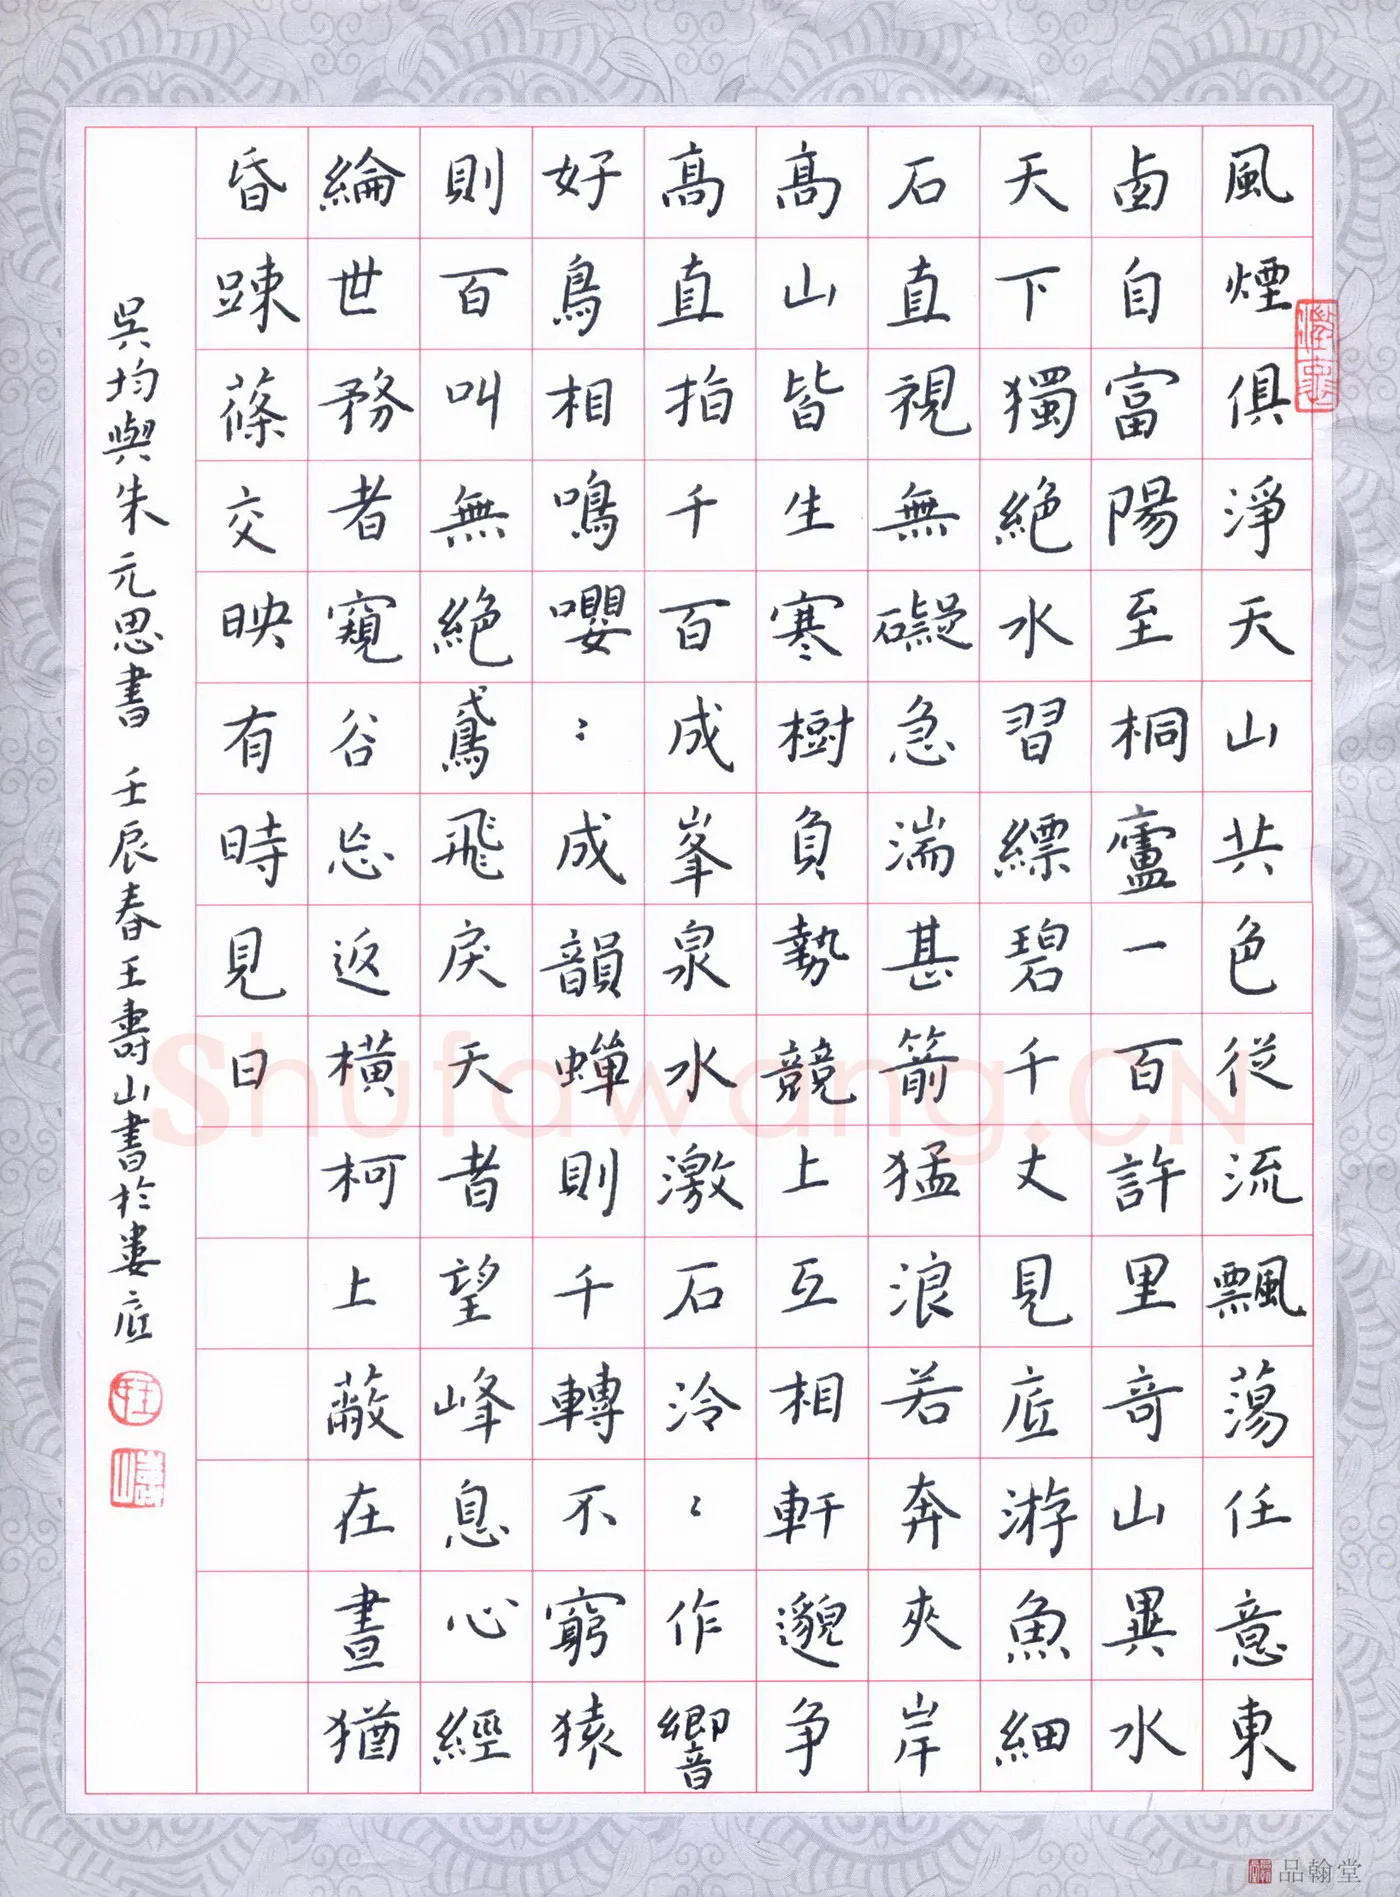 風煙俱淨天山共色從流飄蕩任意東
西自富陽至桐廬一百許里奇山異水
天下獨絕水習縹碧千丈見底游魚細
石直視無礙急湍甚箭猛浪若奔夾岸
高山皆生寒樹負勢競上互相軒邈爭
高直指千百成峯泉水激石泠:作響
好鳥相鳴嚶:成韻蟬則千轉不窮猿
則百叫無絕鳶飛戾天者望峰息心經
綸世務者窺谷忘返橫柯上蔽在晝猶
昏踈蓧交映有時見日
吳均與朱元思書 壬辰春王壽山書於婁底
Shufawang.CN
品翰堂